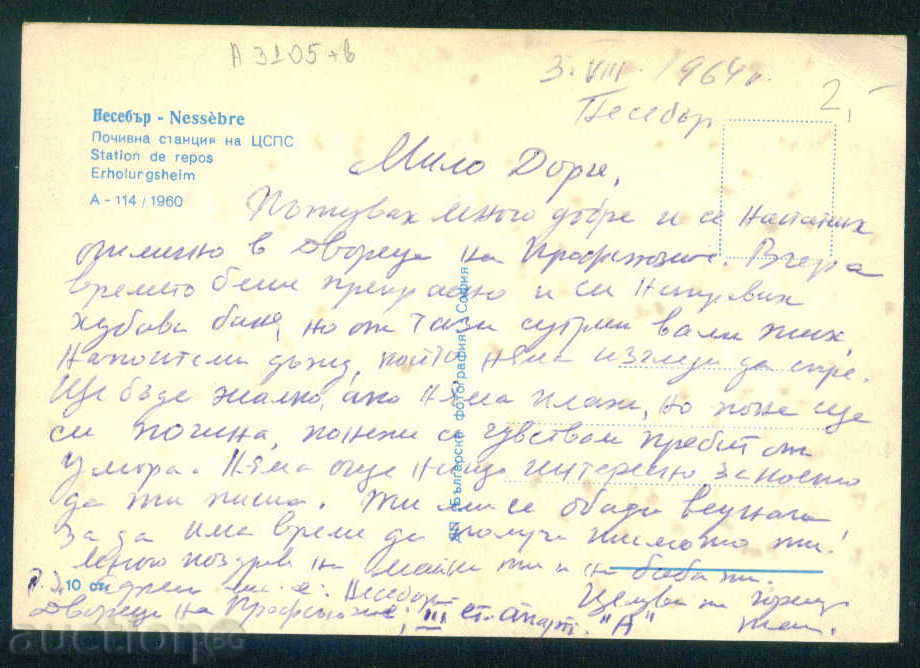 А 3105 + в
3. VIII. 1964 г.
Несебър
2,-
Несебър - Nessèbre
Почивна станция на ЦСПС
Station de repos
Erholungsheim
А - 114 / 1960
Мило
Пътувах много добре и се настаних
отлично в Двореца на Профсъюзите. Вчера
времето беше прекрасно и си направих
хубава баня, но от тази сутрин вали тих,
напоителен дъжд, който няма изгледи да спре.
Ще бъде жалко, ако няма плаж, но поне ще
си почина, понеже се чувствам пребит от
умора. Няма още нищо интересно, за което
да ти пиша. Ти ми се обади веднага
за да има време да получа писмото ти!
Много поздрави на майка ти и на баба ти.
10 ст. ми е: Несебър
Двореца на Профсъюзите, III ет. апарт. "А"
Целува те горещо
ДП "Българска фотография" София
auction.bg